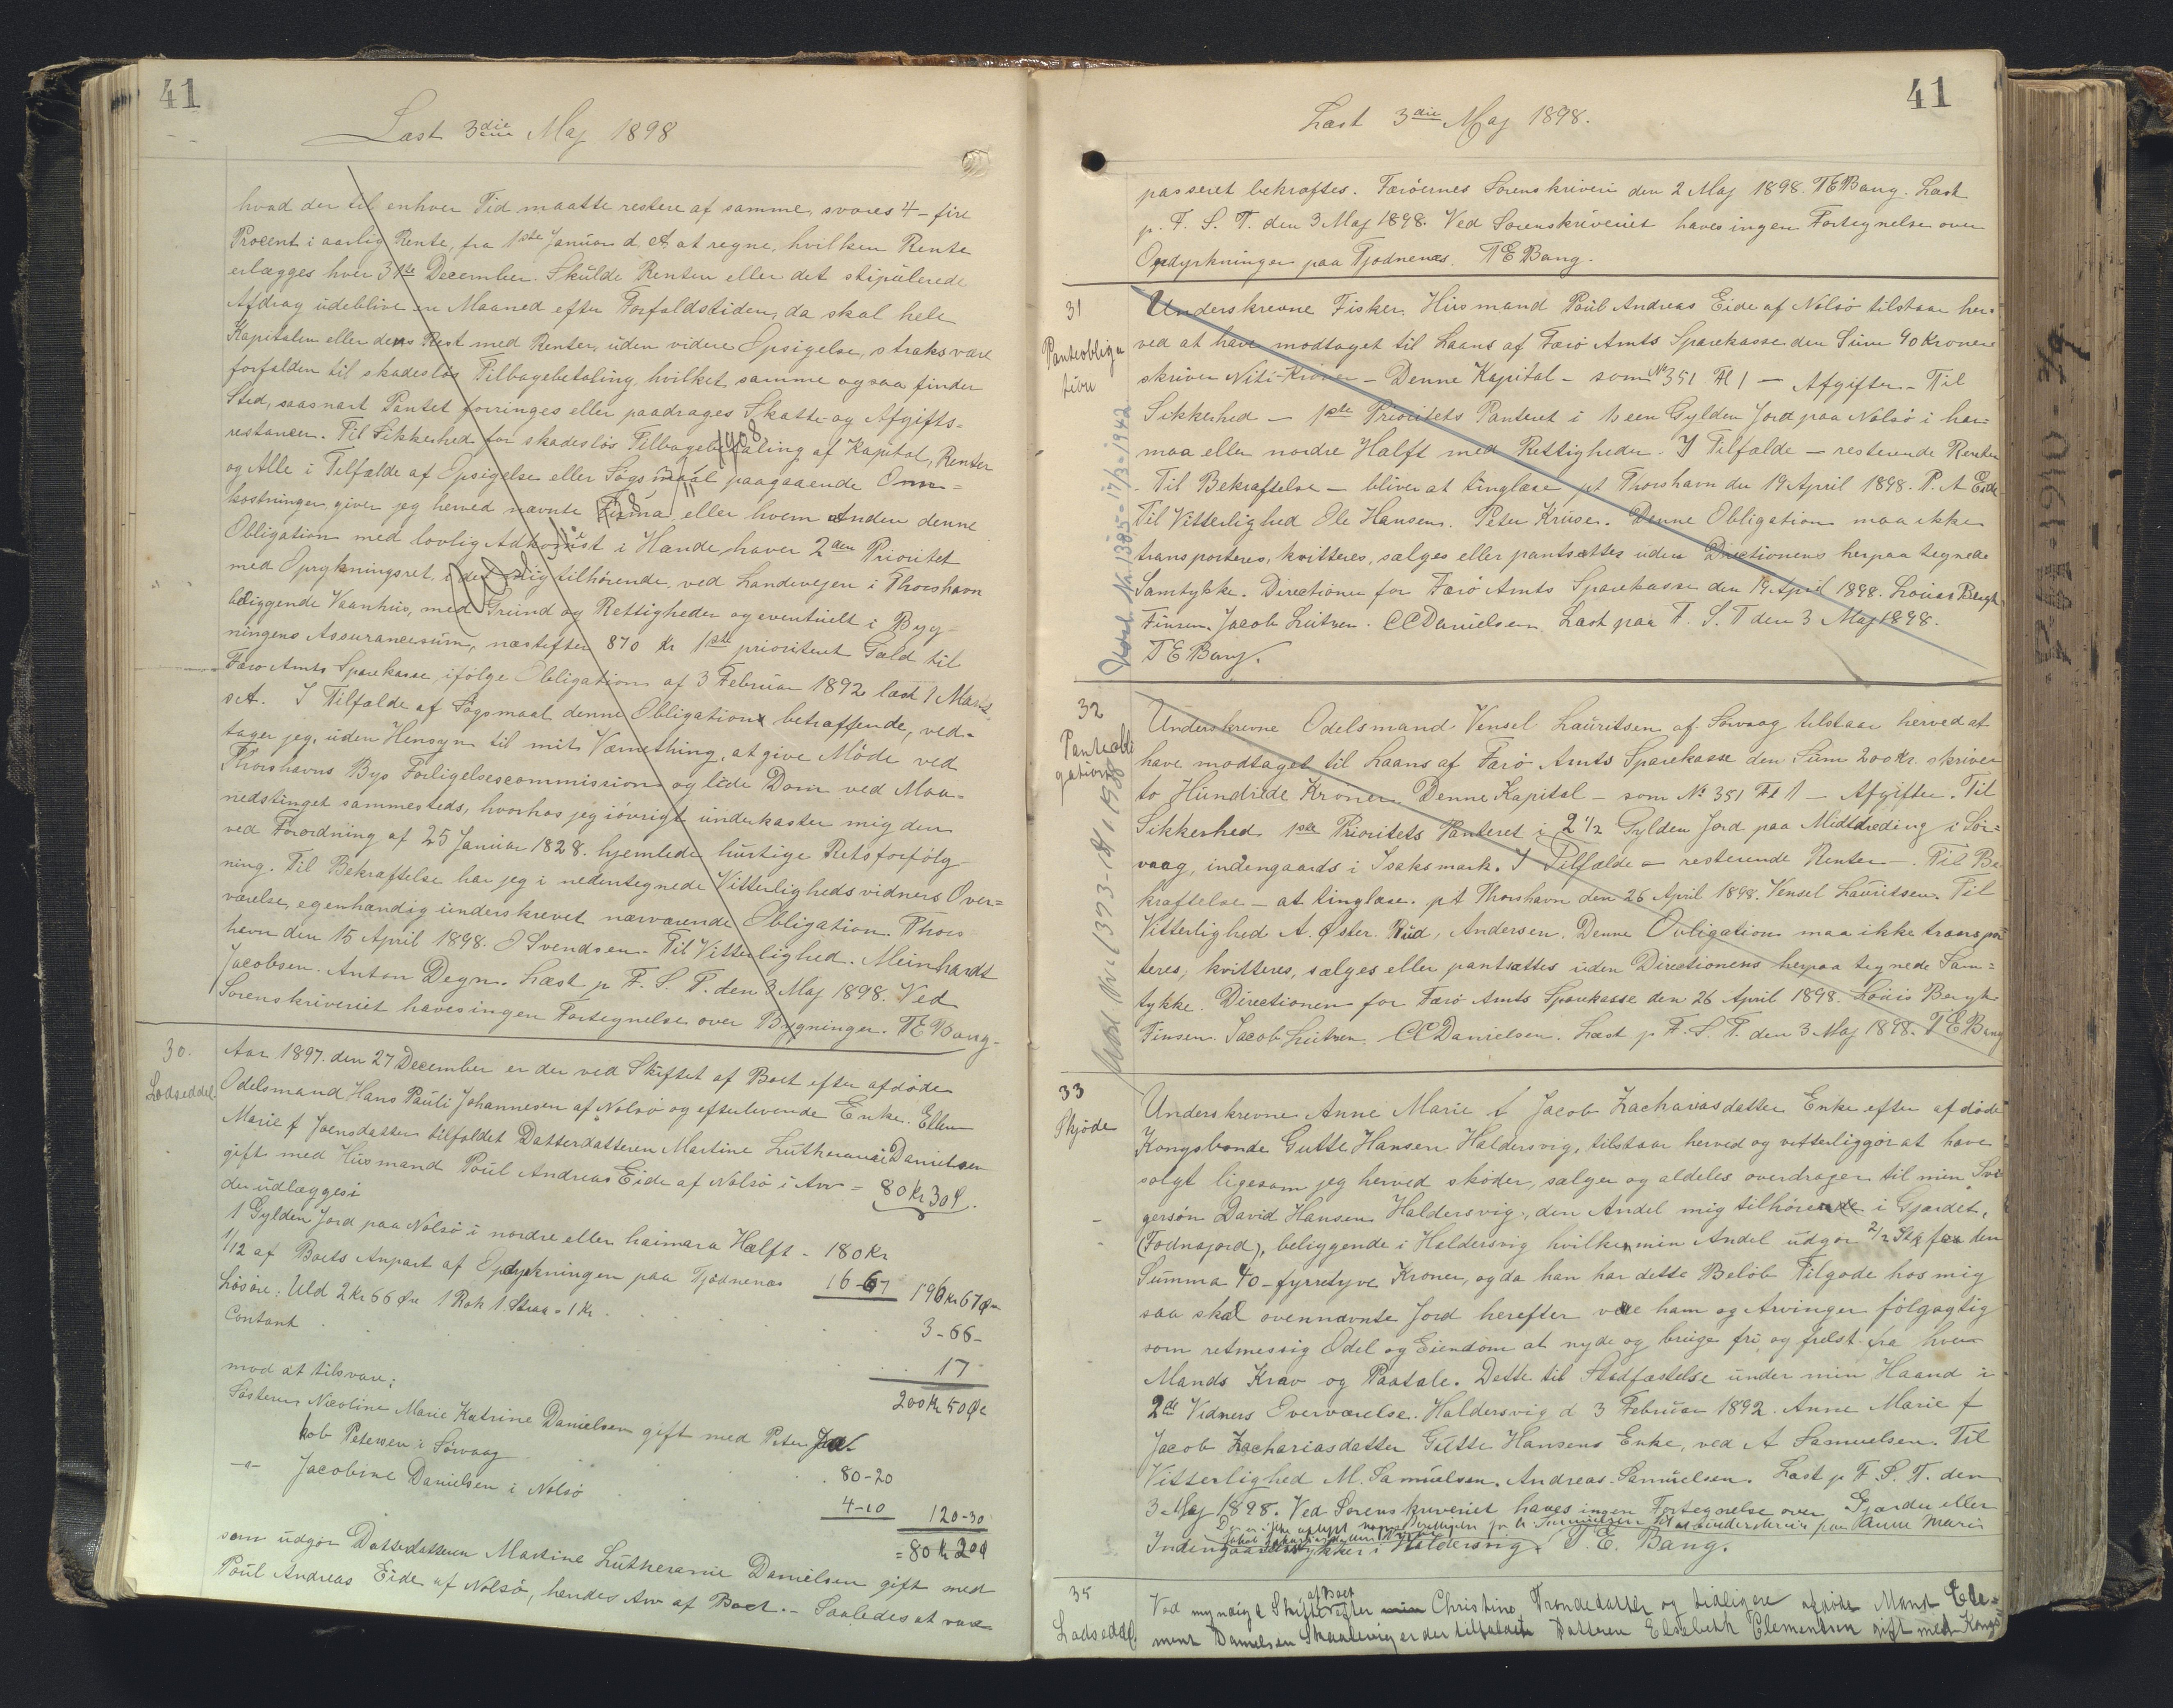 41
Læst 3die Maj 1898
hvad der til enhver Tid maatte restere af samme, svares 4 - fire
Procent i aarlig Rente, fra 1ste Januar d. A. at regne, hvilken Rente
erlægges hver 31te December. Skulde Renten eller det stipulerede
Afdrag udeblive en Maaned efter Forfaldstiden, da skal hele
Kapitalen eller dens Rest med Renter, uden videre Opsigelse, straks være
forfalden til skadesløs Tilbagebetaling, hvilket samme ogsaa finder
Sted, saasnart Pantet forringes eller paadrages Skatte- og Afgifts=
restancer. Til Sikkerhed for skadesløs Tilbagebetaling af Kapital, Renter
og Alle i Tilfælde af Opsigelse eller Søgsmaal paagaaende Om=
kostninger giver jeg herved nævnte Firma eller hvem Anden denne
Obligation med lovlig Adkomst i Hænde haver 2den Prioritet
med Oprykningsret, i det mig tilhørende, ved Landevejen i Thorshavn
beliggende Vaanhus, med Grund og Rettigheder og eventuelt i Byg-
ningens Assurancesum, næstefter 870 Kr 1ste prioriteret Gæld til
Færø Amts Sparekasse ifølge Obligation af 3 Februar 1892 læst 1 Marts
s. A. I Tilfælde af Søgsmaal denne Obligation betræffende, ved=
tager jeg, uden Hensyn til mit Værnething, at give Møde ved
Thorshavns Bys Forligelsescommission og lide Dom ved Maa=
nedstinget sammesteds, hvorhos jeg iøvrigt underkaster mig den
ved Forordning af 25 Januar 1828 hjemlede hurtige Retsforfølg-
ning. Til Bekræftelse har jeg i nedentegnede Vitterlighedsvidners Over=
værelse, egenhændig underskrevet nærværende Obligation. Thors-
havn den 15 April 1898. J Svendsen. Til Vitterlighed. Meinhardt
Jacobsen. Anton Degn. Læst p. F. S. T. den 3 Maj 1898. Ved
Sorenskriveriet haves ingen Fortegnelse over Bygninger. TE Bang.
30.
Lodseddel.
Aar 1897. den 27 December er der ved Skiftet af Boet efter afdøde
Odelsmand Hans Pauli Johannesen af Nolsø og efterlevende Enke. Ellen
Marie f Joensdatter tilfaldet Datterdatteren Martine Lutheranie Danielsen
gift med Husmand Poul Andreas Eide af Nolsø i Arv = 80 Kr 30 Ø.
der udlægges i
1 Gylden Jord paa Nolsø i nordre eller haimara Hælft - 180 Kr
1/12 af Boets Anpart af Opdyrkningen paa Tjødnenes 16-67 196 Kr 67 Øre
Løsøre: Uld 2 Kr 66 Øre 1 Rok 1 Straa = 1 Kr. 3-66-
Contant 17
200 Kr 50 Øre
mod at tilsvare:
Søsteren Nicoline Marie Katrine Danielsen gift med Peter Ja
kob Petersen i Sørvaag 80-20
-"- Jacobine Danielsen i Nolsø 4-10 120-30
= 80 Kr 20 Ø
som udgør Datterdatteren Martine Lutheranie Danielsen gift med
Poul Andreas Eide af Nolsø, hendes Arv af Boet. - Saaledes at være
41
Læst 3die Maj 1898.
passeret bekræftes. Færøernes Sorenskriveri den 2 Maj 1898. TE Bang. Læst
p. F. S. T. den 3 Maj 1898. Ved Sorenskriveriet haves ingen Fortegnelse over
Opdyrkninger paa Tjødnenes. TE Bang.
31
Panteobliga
tion
Underskrevne Fisker, Husmand Poul Andreas Eide af Nolsø tilstaar her-
ved at have modtaget til Laans af Færø Amts Sparekasse den Sum 90 Kroner
skriver Niti-Kroner - Denne Kapital - som No 351 Fl 1 - Afgifter - Til
Sikkerhed - 1ste Prioritets Panteret i 1 een Gylden Jord paa Nolsø i hai-
maa eller nordre Hælft med Rettigheder. I Tilfælde - resterende Renter
- Til Bekræftelse - bliver at tinglæse pt Thorshavn den 19 April 1898. P. A Eide
Til Vitterlighed Ole Hansen. Peter Kruse. Denne Obligation maa ikke
transporteres, kvitteres, sælges eller pantsættes uden Directionens herpaa tegnede
Samtykke. Directionen for Færø Amts Sparekasse den 19 April 1898. Louis Bergh
Finsen. Jacob Lützen. CC Danielsen. Læst paa F. S. T den 3 Maj 1898.
TE Bang.
Nr 1385-17/3-1942
32
Panteobli
gation
Underskrevne Odelsmand Vensel Lauritsen af Sørvaag tilstaar herved at
have modtaget til Laans af Færø Amts Sparekasse den Sum 200 Kr. skriver
to Hundrede Kroner. Denne Kapital - som No 351 Fl 1 - Afgifter. Til
Sikkerhed 1ste Prioritets Panteret i 2 1/2 Gylden Jord paa Midtdreding i Sør=
vaag, indengaards i Isaksmark. I Tilfælde - resterende Renter -. Til Be
kræftelse - at tinglæse. pt Thorshavn den 26 April 1898. Vensel Lauritsen. Til
Vitterlighed A. Øster. Rud, Andersen. Denne Obligation maa ikke transpor
teres, kvitteres, sælges eller pantsættes uden Directionens herpaa tegnede Sam=
tykke. Directionen for Færø Amts Sparekasse den 26 April 1898. Louis Bergh
Finsen. Jacob Lützen. CC Danielsen. Læst p F. S. T. den 3 Maj 1898. TE Bang
33
Skjøde
Underskrevne Anne Marie f Jacob Zachariasdatter Enke efter afdøde
Kongsbonde Gutte Hansen Haldersvig, tilstaar herved og vitterliggør at have
solgt ligesom jeg herved skøder, sælger og aldeles overdrager til min Svi
gersøn David Hansen Haldersvig, den Andel mig tilhørende i Gjærdet,
(Fodnajord), beliggende i Haldersvig hvilken min Andel udgør 2 1/2 Sk for den
Summa 40 - fyrretyve Kroner, og da han har dette Beløb Tilgode hos mig
saa skal ovennævnte Jord herefter være ham og Arvinger følgagtig
som retmessig Odel og Eiendom at nyde og bruge fri og frelst fra hver
Mands Krav og Paatale. Dette til Stadfæstelse under min Haand i
2de Vidners Overværelse. Haldersvig d 3 Februar 1892. Anne Marie f
Jacob Zachariasdatter Gutte Hansens Enke, ved A Samuelsen. Til
Vitterlighed M. Samuelsen. Andreas Samuelsen. Læst p F. S. T. den
3 Maj 1898. Ved Sorenskriveriet haves ingen Fortegnelse over Gjærder eller
Indengaardsstykker i Haldersvig. T. E. Bang.
35
Lodseddel.
Ved myndigt Skifte af Boet efter Christine Trondedatter og tidligere afdøde Mand Cle=
ment Danielsen Skaalevig er der tilfaldet Datteren Elsebeth Clementsen gift med Kongs=